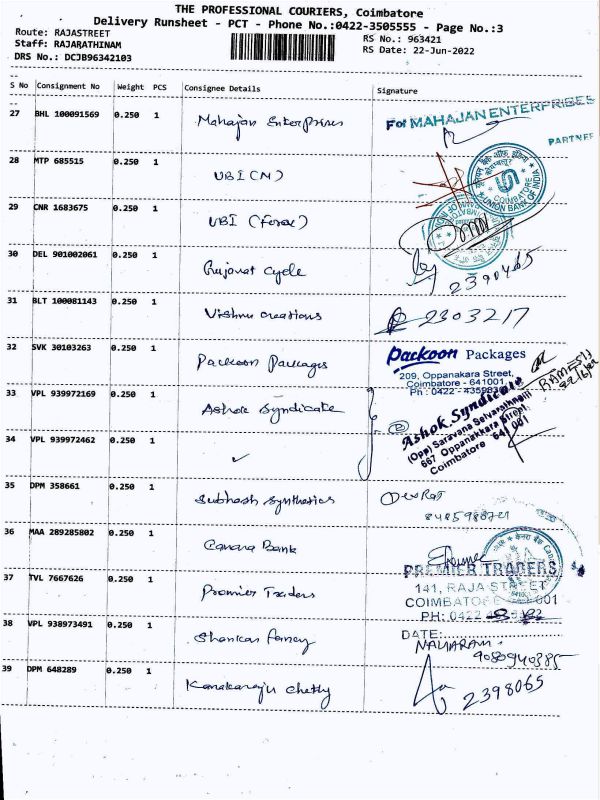 THE PROFESSIONAL COURIERS, Coimbatore
Delivery Runsheet - PCT - Phone No.:0422-3505555 - Page No.:3
Route: RAJASTREET
Staff: RAJARATHINAM
DRS No.: DCJB96342103
RS No.: 963421
RS Date: 22-Jun-2022
S No Consignment No Weight PCS Consignee Details Signature
27 BHL 100091569 0.250 1 Mahajan Enterprises
For MAHAJAN ENTERPRISES
PARTNER
28 MTP 685515 0.250 1 UBI (M)
COIMBATORE
UNION BANK OF INDIA
29 CNR 1683675 0.250 1 UBI (Forex)
30 DEL 901002061 0.250 1 Gujarat Cycle
2390465
31 BLT 100081143 0.250 1 Vishnu Creations 2303217
32 SVK 30103263 0.250 1 Packoon Packages
Packoon Packages
209, Oppanakara Street,
Coimbatore - 641001
RAMESH
33 VPL 939972169 0.250 1 Ashok Syndicate
Ashok Syndicate
(Opp) Saravana Selvarathnam
667 Oppanakkara Street,
Coimbatore 641 001
34 VPL 939972462 0.250 1 ✓
35 DPM 358661 0.250 1 Subhash Synthetics
36 MAA 289285802 0.250 1 Canara Bank
37 TVL 7667626 0.250 1 Premier Traders
PREMIER TRADERS
141, RAJA STREET
COIMBATORE 641 001
PH: 0422
38 VPL 938973491 0.250 1 Shankar fancy
DATE:
9080940385
39 DPM 648289 0.250 1 Kanakaraju Chetty
2398065